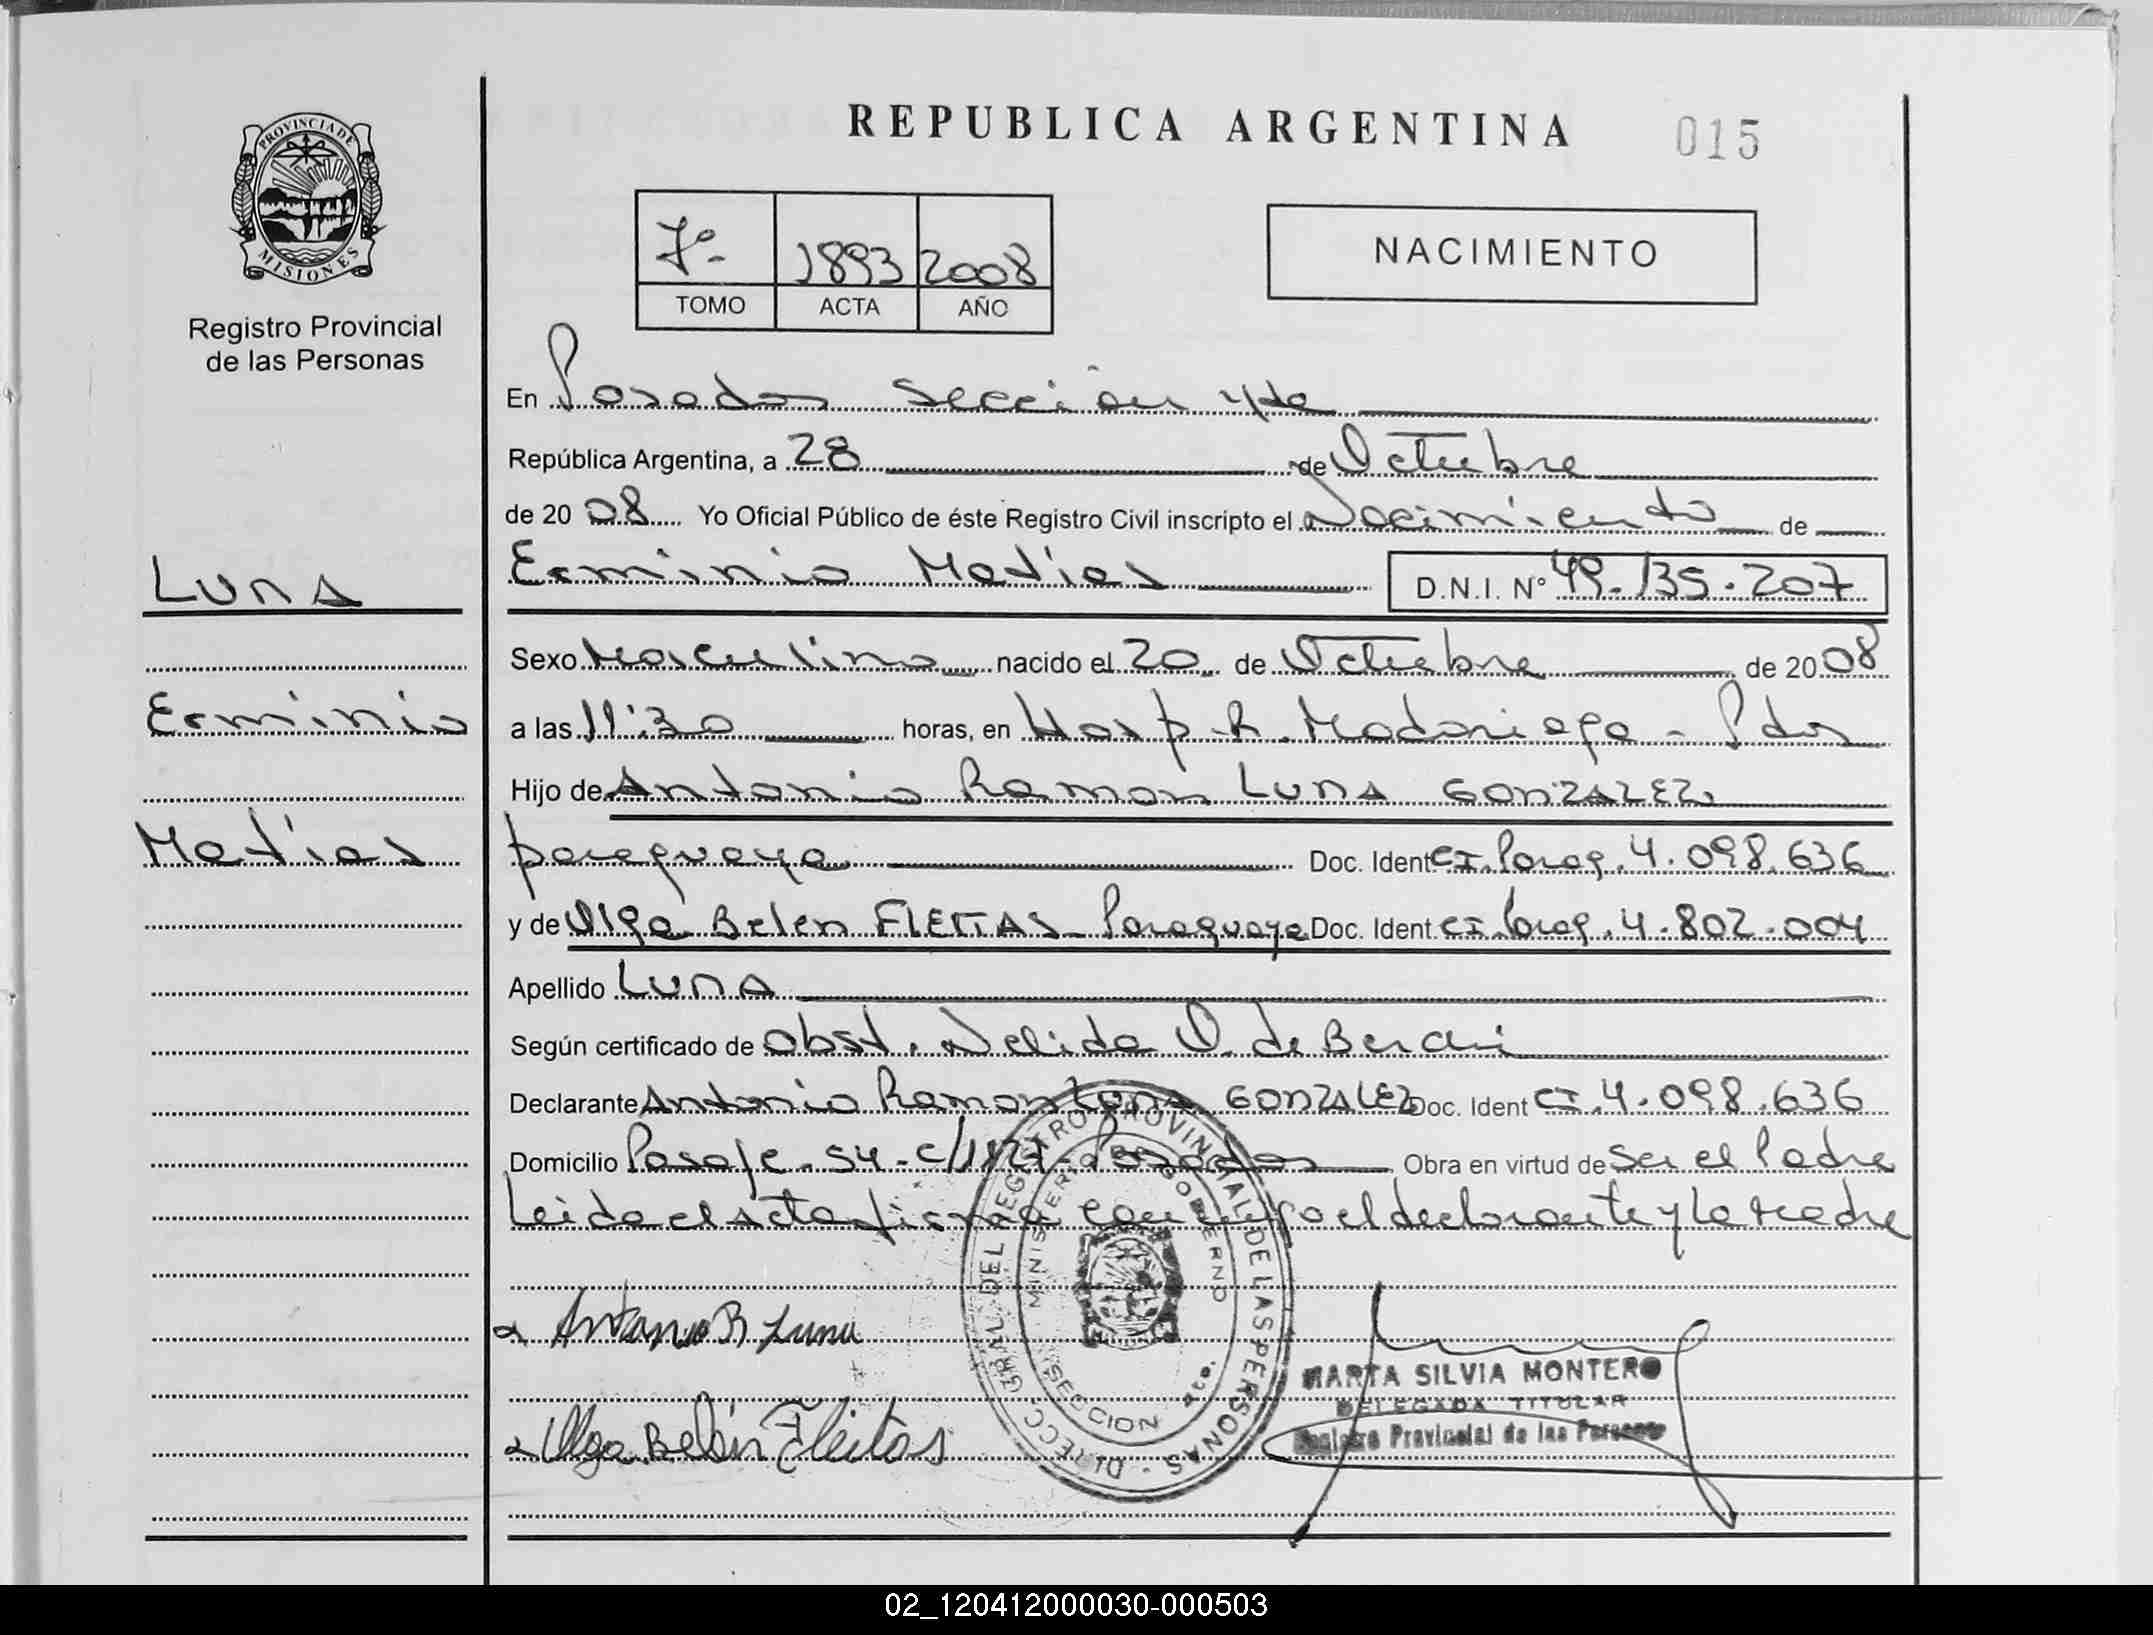 REPUBLICA ARGENTINA 015
PROVINCIA DE
MISIONES
Registro Provincial
de las Personas
7º- 1893 2008
TOMO ACTA AÑO
NACIMIENTO
En Posadas Sección 4ta
República Argentina, a 28 de Octubre
de 2008 Yo Oficial Público de éste Registro Civil inscripto el Nacimiento de
Luna
Erminio Matías D.N.I. Nº 49.135.207
Sexo Masculino nacido el 20 de Octubre de 2008
Erminio
a las 11:30 horas, en Hosp. R. Madariaga - Pdas
Hijo de Antonio Ramon Luna GONZALEZ,
Matías
paraguaya Doc. Ident. CI. Parag. 4.098.636
y de Olga Belen FLEITAS - Paraguaya Doc. Ident. CI. Parag. 4.802.004
Apellido Luna
Según certificado de Obst. Nelida O. de
Declarante Antonio Ramon Luna GONZALEZ Doc. Ident CI. 4.098.636
Domicilio Pasaje 54 - c/ Posadas Obra en virtud de ser el Padre
Leida el acta firma conmigo el declarante y la Madre
Antonio R Luna
Olga Belén Fleitas
DIRECC. GRAL. DEL REGISTRO PROVINCIAL DE LAS PERSONAS
MINISTERIO DE GOBIERNO
SECCION 4ta.
MARTA SILVIA MONTERO
DELEGADA TITULAR
Registro Provincial de las Personas
02_120412000030-000503